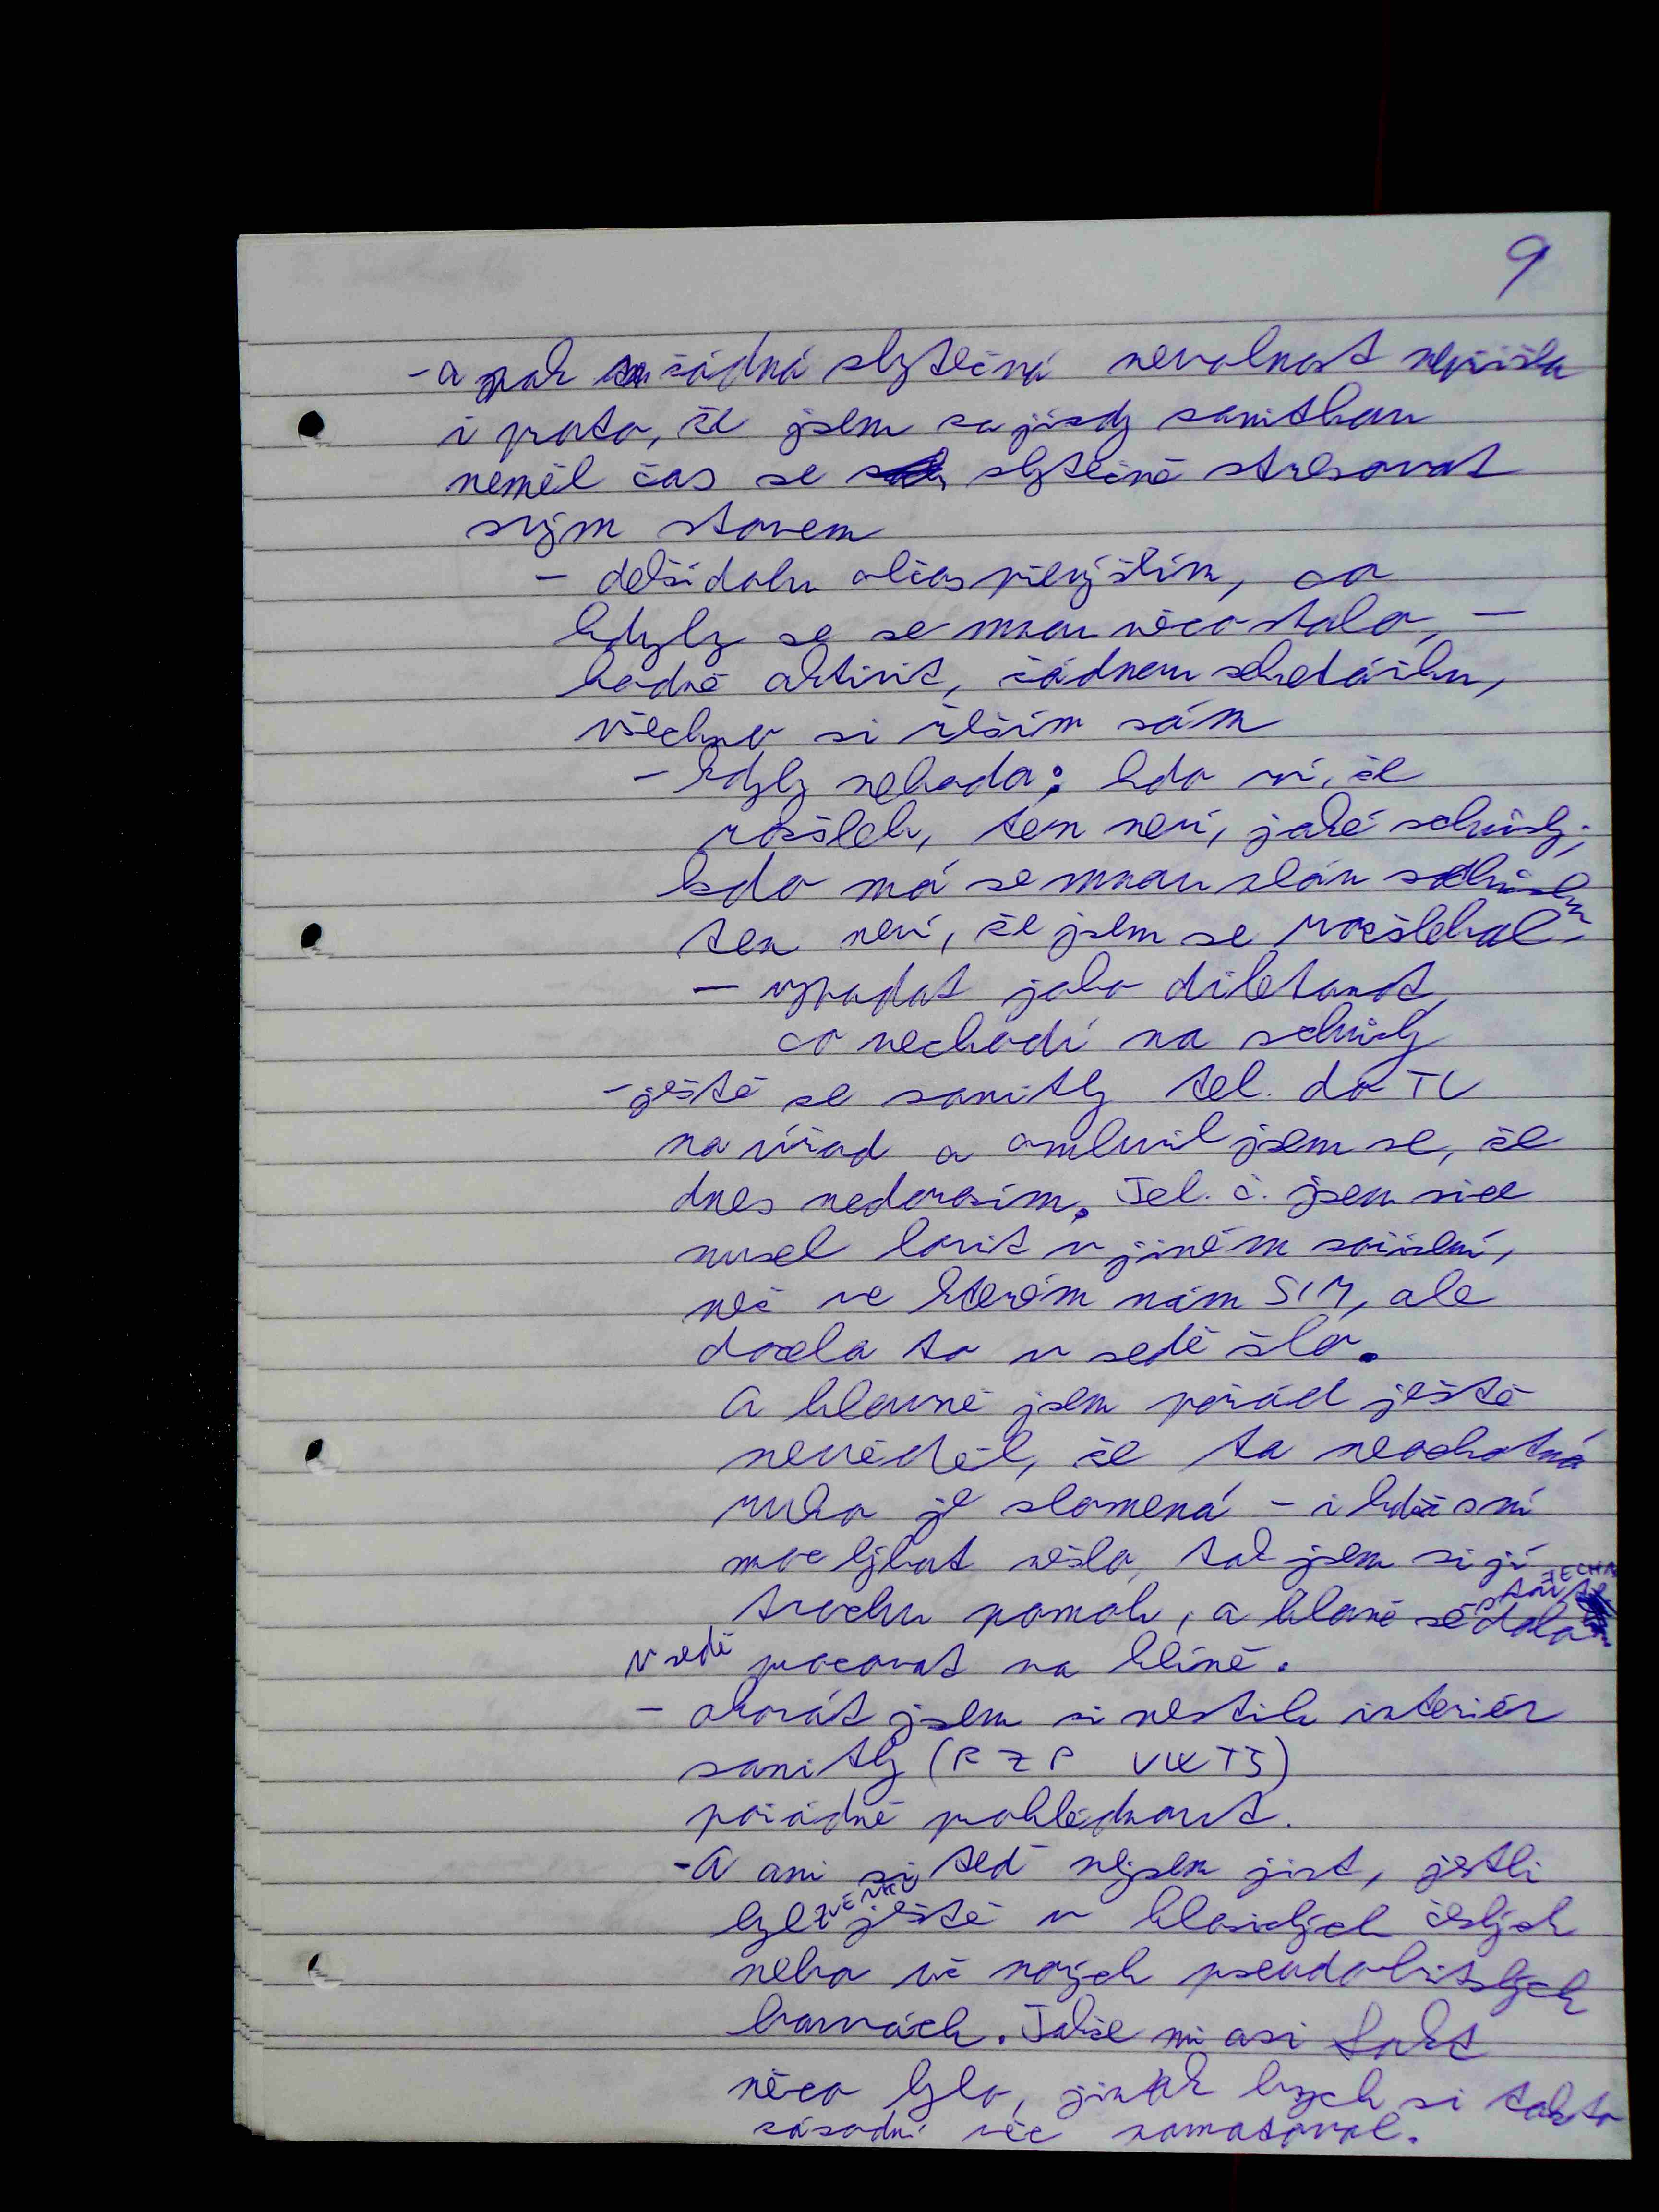 9
- a pak žádná zbytečná nevolnost nepřišla
i proto, že jsem za jízdy sanitkou
neměl čas se zbytečně stresovat
svým stavem
- delší dobu občas přemýšlím, co
kdyby se se mnou něco stalo, -
hodně aktivit, žádnou sekretářku,
všechno si řeším sám
- kdyby nehoda: kdo ví, že
rozšleh, ten neví, jaké schůzky;
kdo má se mnou plán schůzku
ten neví, že jsem se rozšlehal;
- vypadat jako diletant,
co nechodí na schůzky
- ještě ze sanitky tel. do TC
na úřad a omluvil jsem se, že
dnes nedorazím. Tel. č. jsem sice
musel lovit v jiném zařízení,
než ve kterém mám SIM, ale
docela to v sedě šlo.
A hlavně jsem pořád ještě
nevěděl, že ta neochotná
ruka je zlomená - i když s ní
moc hýbat nešlo, tak jsem si jí
trochu pomoh, a hlavně se dala
v sedě pracovat na klíně.
- akorát jsem si nestih interiér
sanitky (RZP VW T5)
pořádně prohlédnout.
- A ani si teď nejsem jist, jestli
byl ZVENKU ještě v klasických českých
nebo už nových pseudobritských
barvách. Takže mi asi fakt
něco bylo, jinak bych si takto
zásadní věc zamatoval.